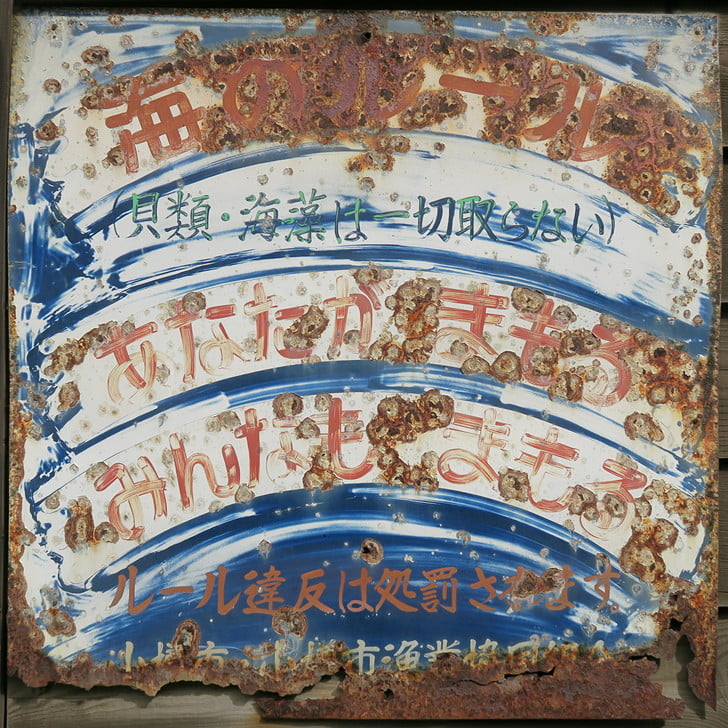 海のルール
(貝類・海藻は一切取らない)
あなたが まもる
みんなも まもる
ルール違反は処罰されます
小樽市・小樽市漁業協同組合